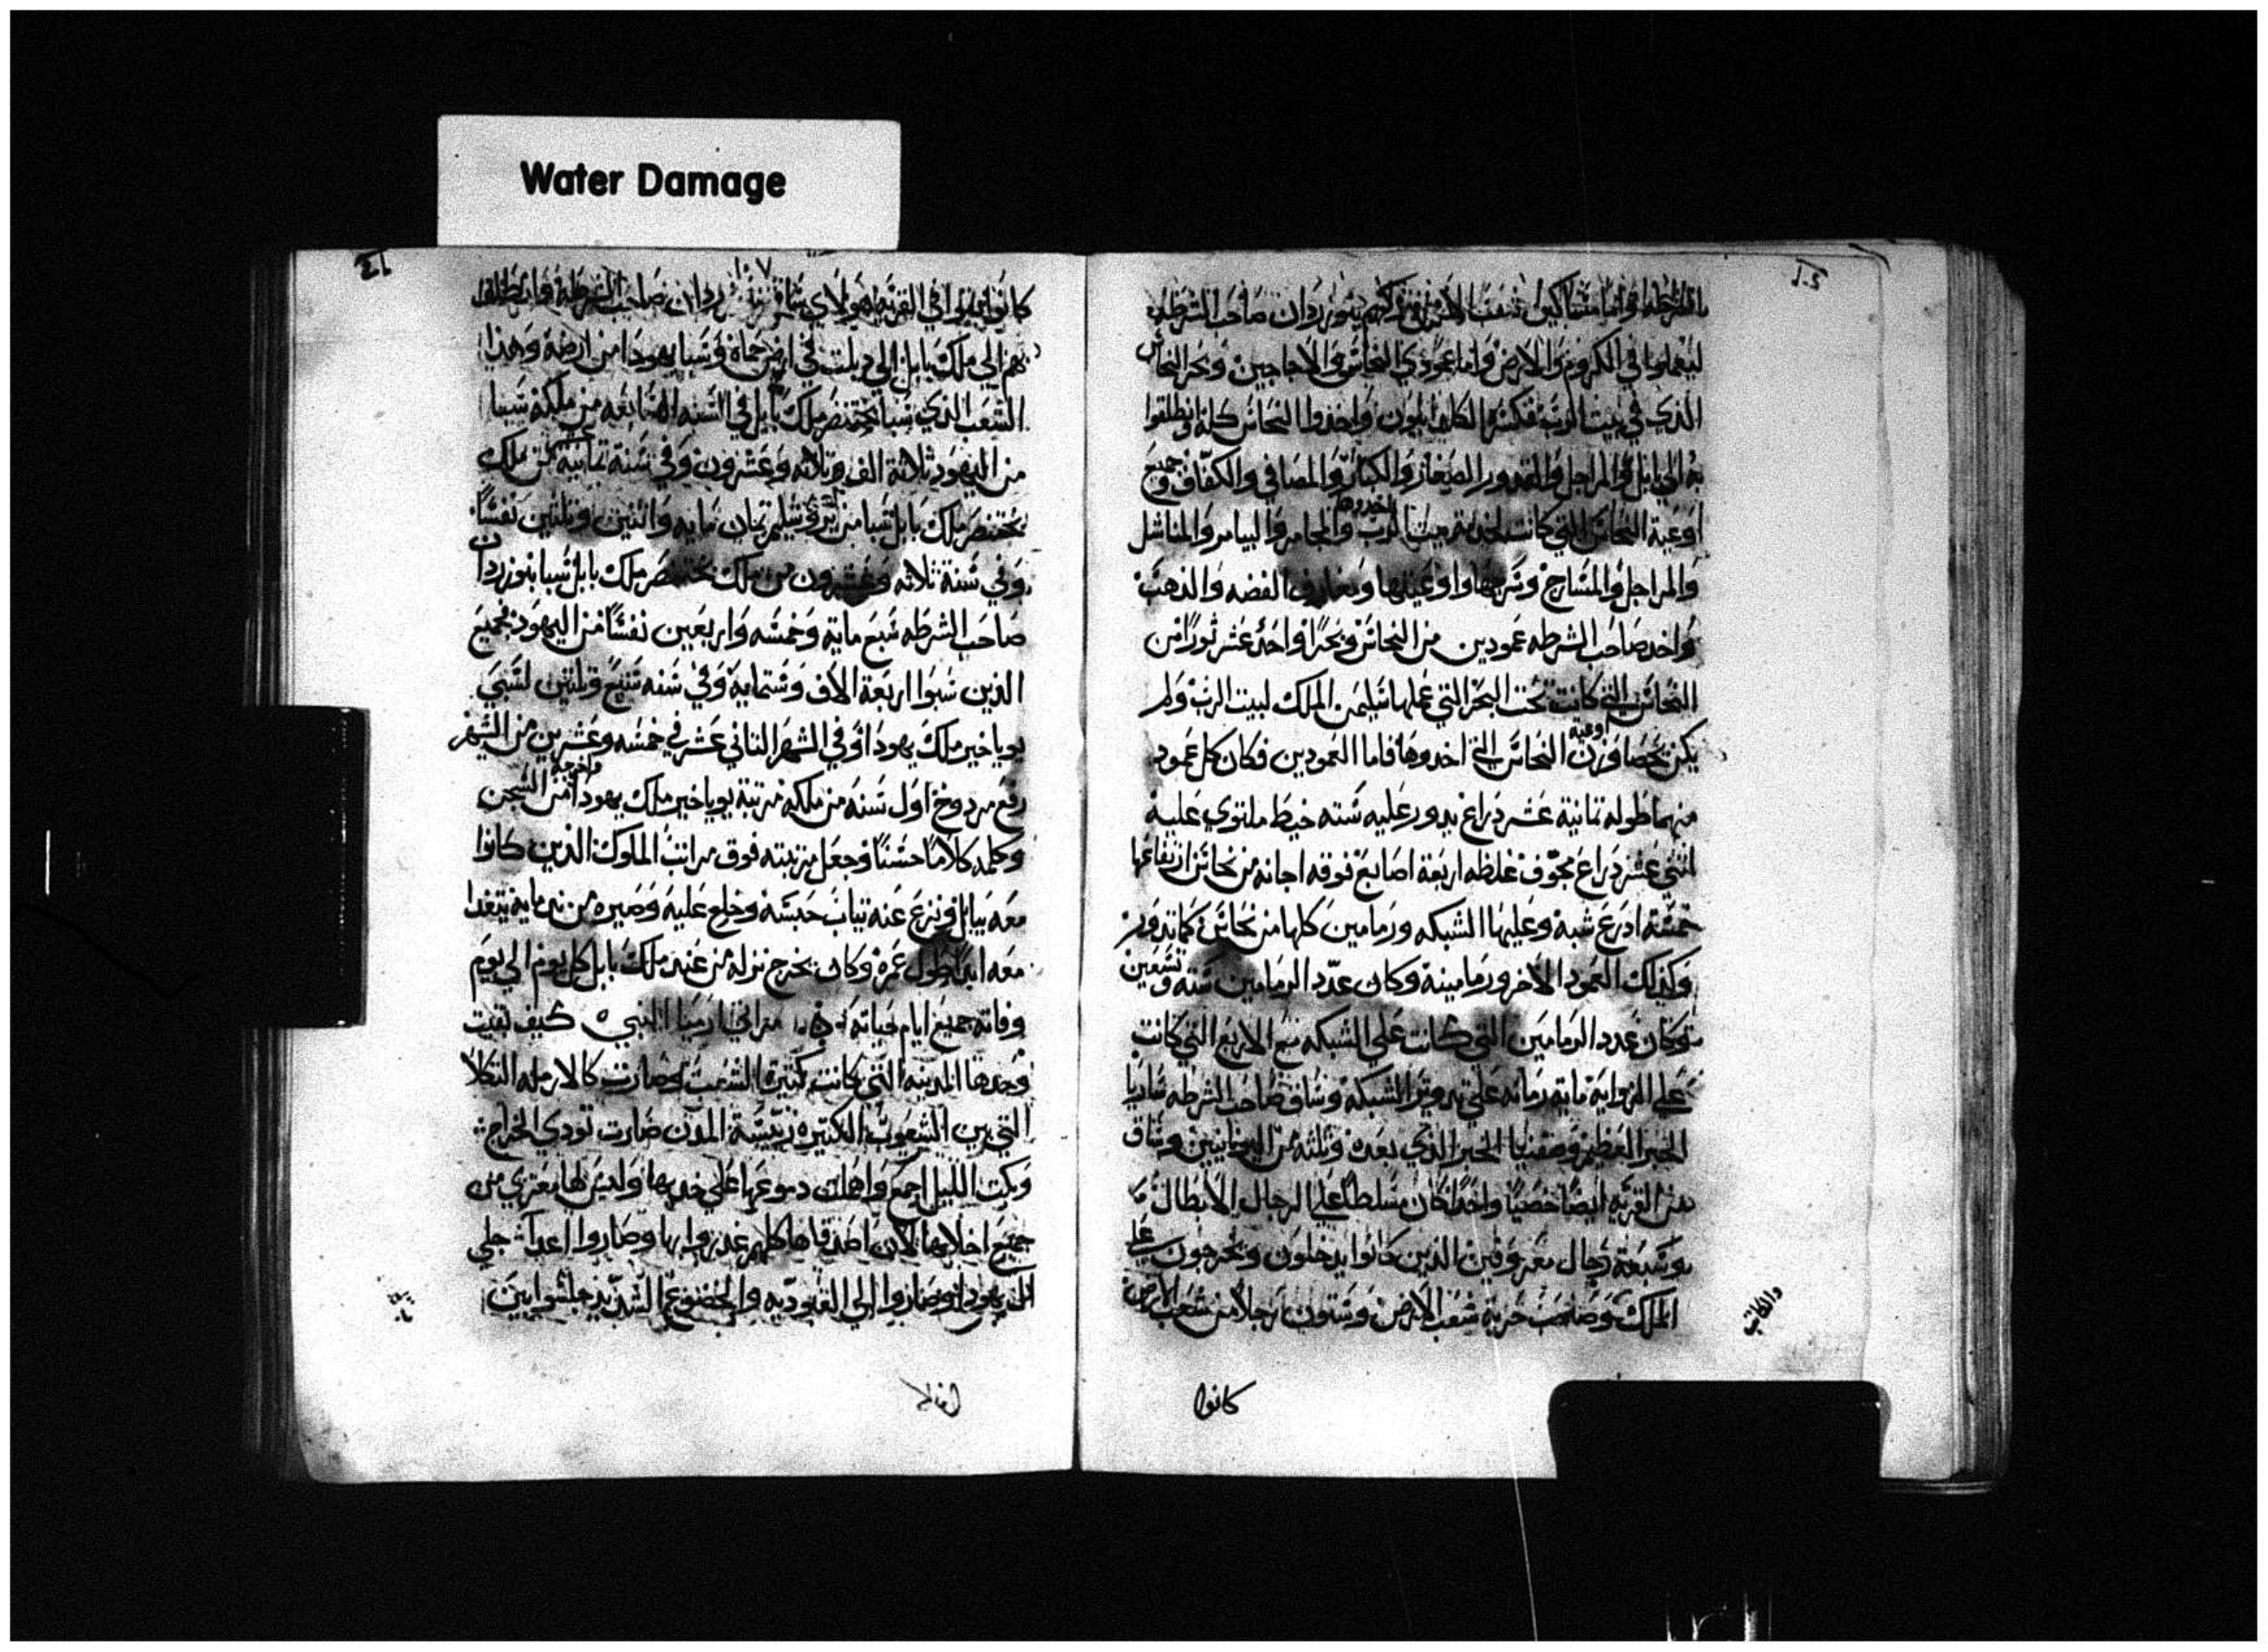 Water Damage
صاحب الشرطه
ليعملوا في الكروم والارض واما عمودي النحاس والاجاجين وبحر النحاس
الذي في بيت الرب واخدوا النحاس كله وانطلقوا
به الي بابل والمراجل والقدور الصغار والكبار والمصافي والكفاف وجميع
اوعية النحاس التي كانت الرب اخدوها والمجامر والمناشل
والمراجل والمسارج الفضه والدهب
واخد صاحب الشرطه عمودين من النحاس وبحرا واحد عشر ثورا من
النحاس التي كانت تحت البحر التي عملها سليمن الملك لبيت الرب ولم
يكن يحصا وزن اوعية النحاس التي اخدوها فاما العمودين فكان كل عمود
منهما طوله تمانية عشر دراع يدور عليه شته خيط ملتوي عليه
اتني عشر دراع مجوف غلظه اربعة اصابع فوقه اجانه من نحاس ارتفاعها
خمسة ادرع شبه وعليها الشبكه ورمامين كلها من نحاس كما تدور
وكدلك العمود الاخر ورمامينة وكان عدد الرمامين ستة وتسعين
وكان عدد الرمامين التي كانت علي الشبكه مع الاربع التي كانت
علي الزوايه مايه رمانه علي تدوير الشبكه وساق صاحب الشرطه
الحبر العظيم الحبر الدي بعده وتلته من وساق
من القريه ايضا خصيا واحدا كان مسلطا علي الرجال الابطال
وسبعة رجال معروفين الدين كانوا يدخلون ويخرجون علي
الملك وصاحب حربة شعب الارض وستون رجلا من شعب الارض
والكاتب
كانوا
كانوا في القريه هولاي ساق صاحب الشرطه وانطلق
بهم الي ملك بابل الي دبلت في ارض حماة وسبا يهودا من ارضه وهدا
الشعب الدي سبا بختنصر ملك بابل في السنه السابعه من ملكه سبيا
من اليهود ثلاثة الف وثلاثه وعشرون وفي سنة تمانية من ملك
بختنصر ملك بابل سبا من يروشليم تمان مايه واتنين وتلتين نفسا
وفي سنة ثلاثه وعشرون من ملك بختنصر ملك بابل سبا بنوزردان
صاحب الشرطه سبع ماية وخمسه واربعين نفسا من اليهود فجميع
الدين سبوا اربعة الاف وستماية وفي سنه سبع وتلتين لسبي
يوياخير ملك يهودا وفي الشهر التاني عشر في خمسه وعشرين من الشهر
رفع مردوخ اول سنه من ملكه مرتبة يوياخير ملك يهودا واخرجه من السجن
وكلمه كلاما حسنا وجعل مرتبته فوق مراتب الملوك الدين كانوا
معه ببابل ونزع عنه تياب حبسه وخلع عليه وصيره من يتغدا
معه ابدا طول عمره وكان يخرج نزله من عند ملك بابل كل يوم الي يوم
وفاته جميع ايام حياته مراتي ارميا النبي كيف بقيت
وحدها المدينه التي كانت كتيرة الشعب وصارت كالارمله التكلا
التي بين الشعوب الكتيره رييسة المدن صارت تودي الخراج
وبكت الليل اجمع دموعها علي خديها وليس لها معزي من
جميع اخلايها لان اصدقاها كلهم غدروا بها وصاروا اعدا جلي
ال يهودا وصاروا الي العبوديه والخضوع الشديد جلسوا بين